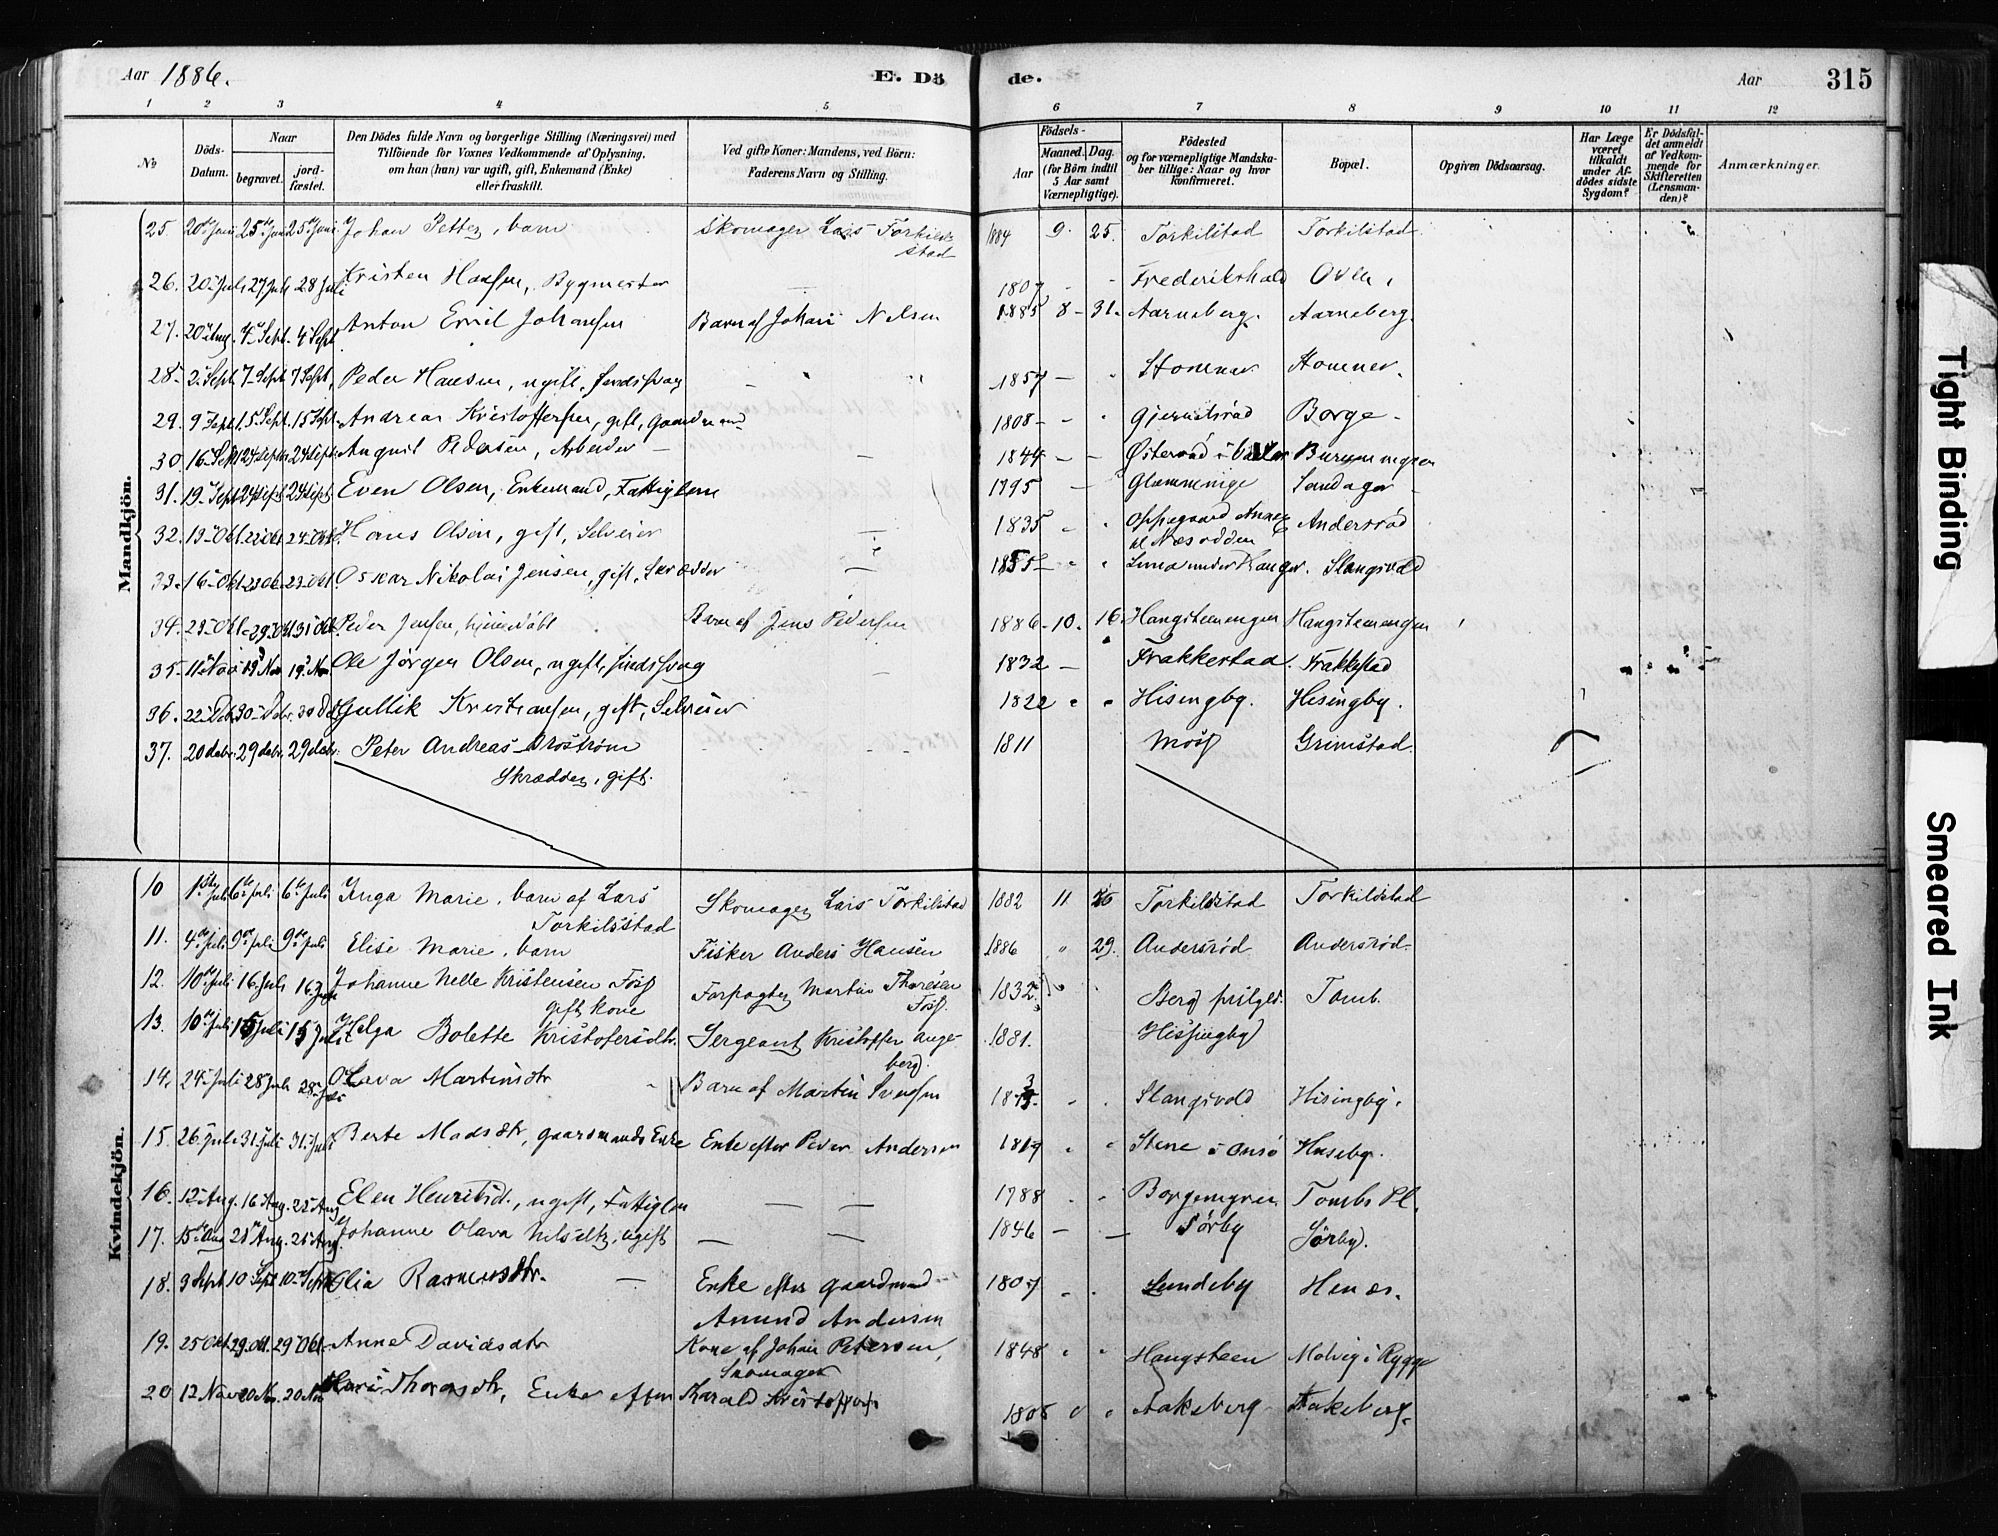 Aar 1886. E. Dö de. Aar 315
1 2 3 4 5 6 7 8 9 10 11 12
No
Döds-Datum.
Naar
begravet.
jord-fæstet.
Den Dödes fulde Navn og borgerlige Stilling (Næringsvei) med
Tilföiende for Voxnes Vedkommende af Oplysning,
om han (hun) var ugift, gift, Enkemand (Enke)
eller fraskilt.
Ved gifte Koner: Mandens, ved Börn:
Faderens Navn og Stilling.
Födsels-
Aar
Maaned. Dag.
(for Börn indtil
5 Aar samt
Værnepligtige).
Födested
og for værnepligtige Mandska-
ber tillige: Naar og hvor
Konfirmeret.
Bopæl.
Opgiven Dödsaarsag.
Har Læge
været
tilkaldt
under Af-
dödes sidste
Sygdom?
Er Dödsfal-
det anmeldt
af Vedkom-
mende for
Skifteretten
(Lensman-
den)?
Anmærkninger.
Mandkjön.
25. 20de Juni 25de Juni 25de Juni Johan Petter, barn Skomager Lars Torkilds- 1884 9. 25. Torkilstad Torkilstad
stad
26. 20 Juli 27 Juli 28 Juli Kristen Hansen, Bygmester 1807 Frederikshald Oven
27. 20 Aug. 4 Sept. 4 Sept Anton Emil Johansen Barn af Johan Nelsen 1885 8 - 31. Aarneberg. Aarneberg.
28. 2 Sept. 7 Sept. 7 Sept. Peder Hansen, ugift, sindssvag 1857 Stomner Stomner.
29. 9 Sept. 15 Sept. 15 Sept. Andreas Kristoffersen, gift, Gaardmand 1808 Gjernetsrød Borge
30. 16 Sept 24 Septr 24 Septr August Pedersen, Arbeider 1844 Østerød i Vaaler
31. 19 Sept 24 Sept 24 Sept. Even Olsen, Enkemand, Fattiglem 1795 Glemminge Sandager
32. 13 Okt 22 Okt 24 Okt. Hans Olsen, gift, Selveier 1835 Oppegaard Annex Andersrød
til Næsodden
33. 16 Okt 23 Ok. 23 Okt Oskar Nikolai Jensen, gift, Skrædder 1855 Slangsvold
34. 23 Okt. 29 Okt 31 Okt. Peder Jensen, hjemmedøbt Barn af Jens Pedersen 1886 - 10. 16. Hangstenengen Hangstenengen
35. 11 Nov 19 Nov 19 Nov Ole Jørgen Olsen, ugift, sindssvag 1832 Frakkestad. Frakkestad
36. 22 Deb. 30 Debr. 30 Dec Gullik Kristiansen, gift, Selveier 1822 Hisingby. Hisingby.
37. 20 decbr. 29 decbr. 29 decbr. Peter Andreas Broström 1811 Moss Grimstad.
Skrædder, gift.
Kvindekjön.
10 1ste Juli 6te Juli 6te Juli Inga Marie, barn af Lars Skomager Lars Torkilstad 1882 11 Torkilstad Torkildstad
Torkilsstad
11. 4de Juli 9de Juli 9de Juli Elise Marie, barn Fisker Anders Hansen 1886 29. Andersrød Andersrød
12. 10de Juli 16. Juli 16. Juli Johanne Nelle Kristensen Foss Forpagter Martin Thoresen 1832 Berg prstgld. Tomb.
gift kone Foss
13. 10de Juli 15 Juli 15 Juli Helga Bolette Kristofersdtr. Sergeant Kristoffer Ange- 1881. Hissingby
berg.
14. 24 Juli 28 Juli 28 Juli Olava Martinsdtr Barn af Martin Svensen Slangsvold Hisingby.
15. 26 Juli 31 Juli 31 Juli Berte Madsdtr, gaardmands Enke Enke efter Peder Andersen 1819 Stene i Onsö Huseby.
16. 12 Aug. 16 Aug. 22 Aug Elen Henriksd., ugift, Fattiglem 1788 Borgemyren Tombs Pl.
17. 15 Aug 21 Aug. 21 Aug. Johanne Olava Nilsdtr, ugift 1846 Sørby Sørby.
18. 3 Sept. 10 Sept 10 Sept Olia Rasmusdtr. Enke efter gaardmand 1807 Lundeby Henæs.
Amund Andersen
19. 25 Okt. 29. Okt. 29 Okt. Anne Davidsdtr Kone af Johan Petersen, 1848 Hangsteen Molvig i Rygge
Skomager
20 12 Nov 20 No. 20 Nov Thorsdtr, Enke efter Harald Kristoffersen 1805 Aakeberg Aakeberg.
Tight Binding
Smeared Ink